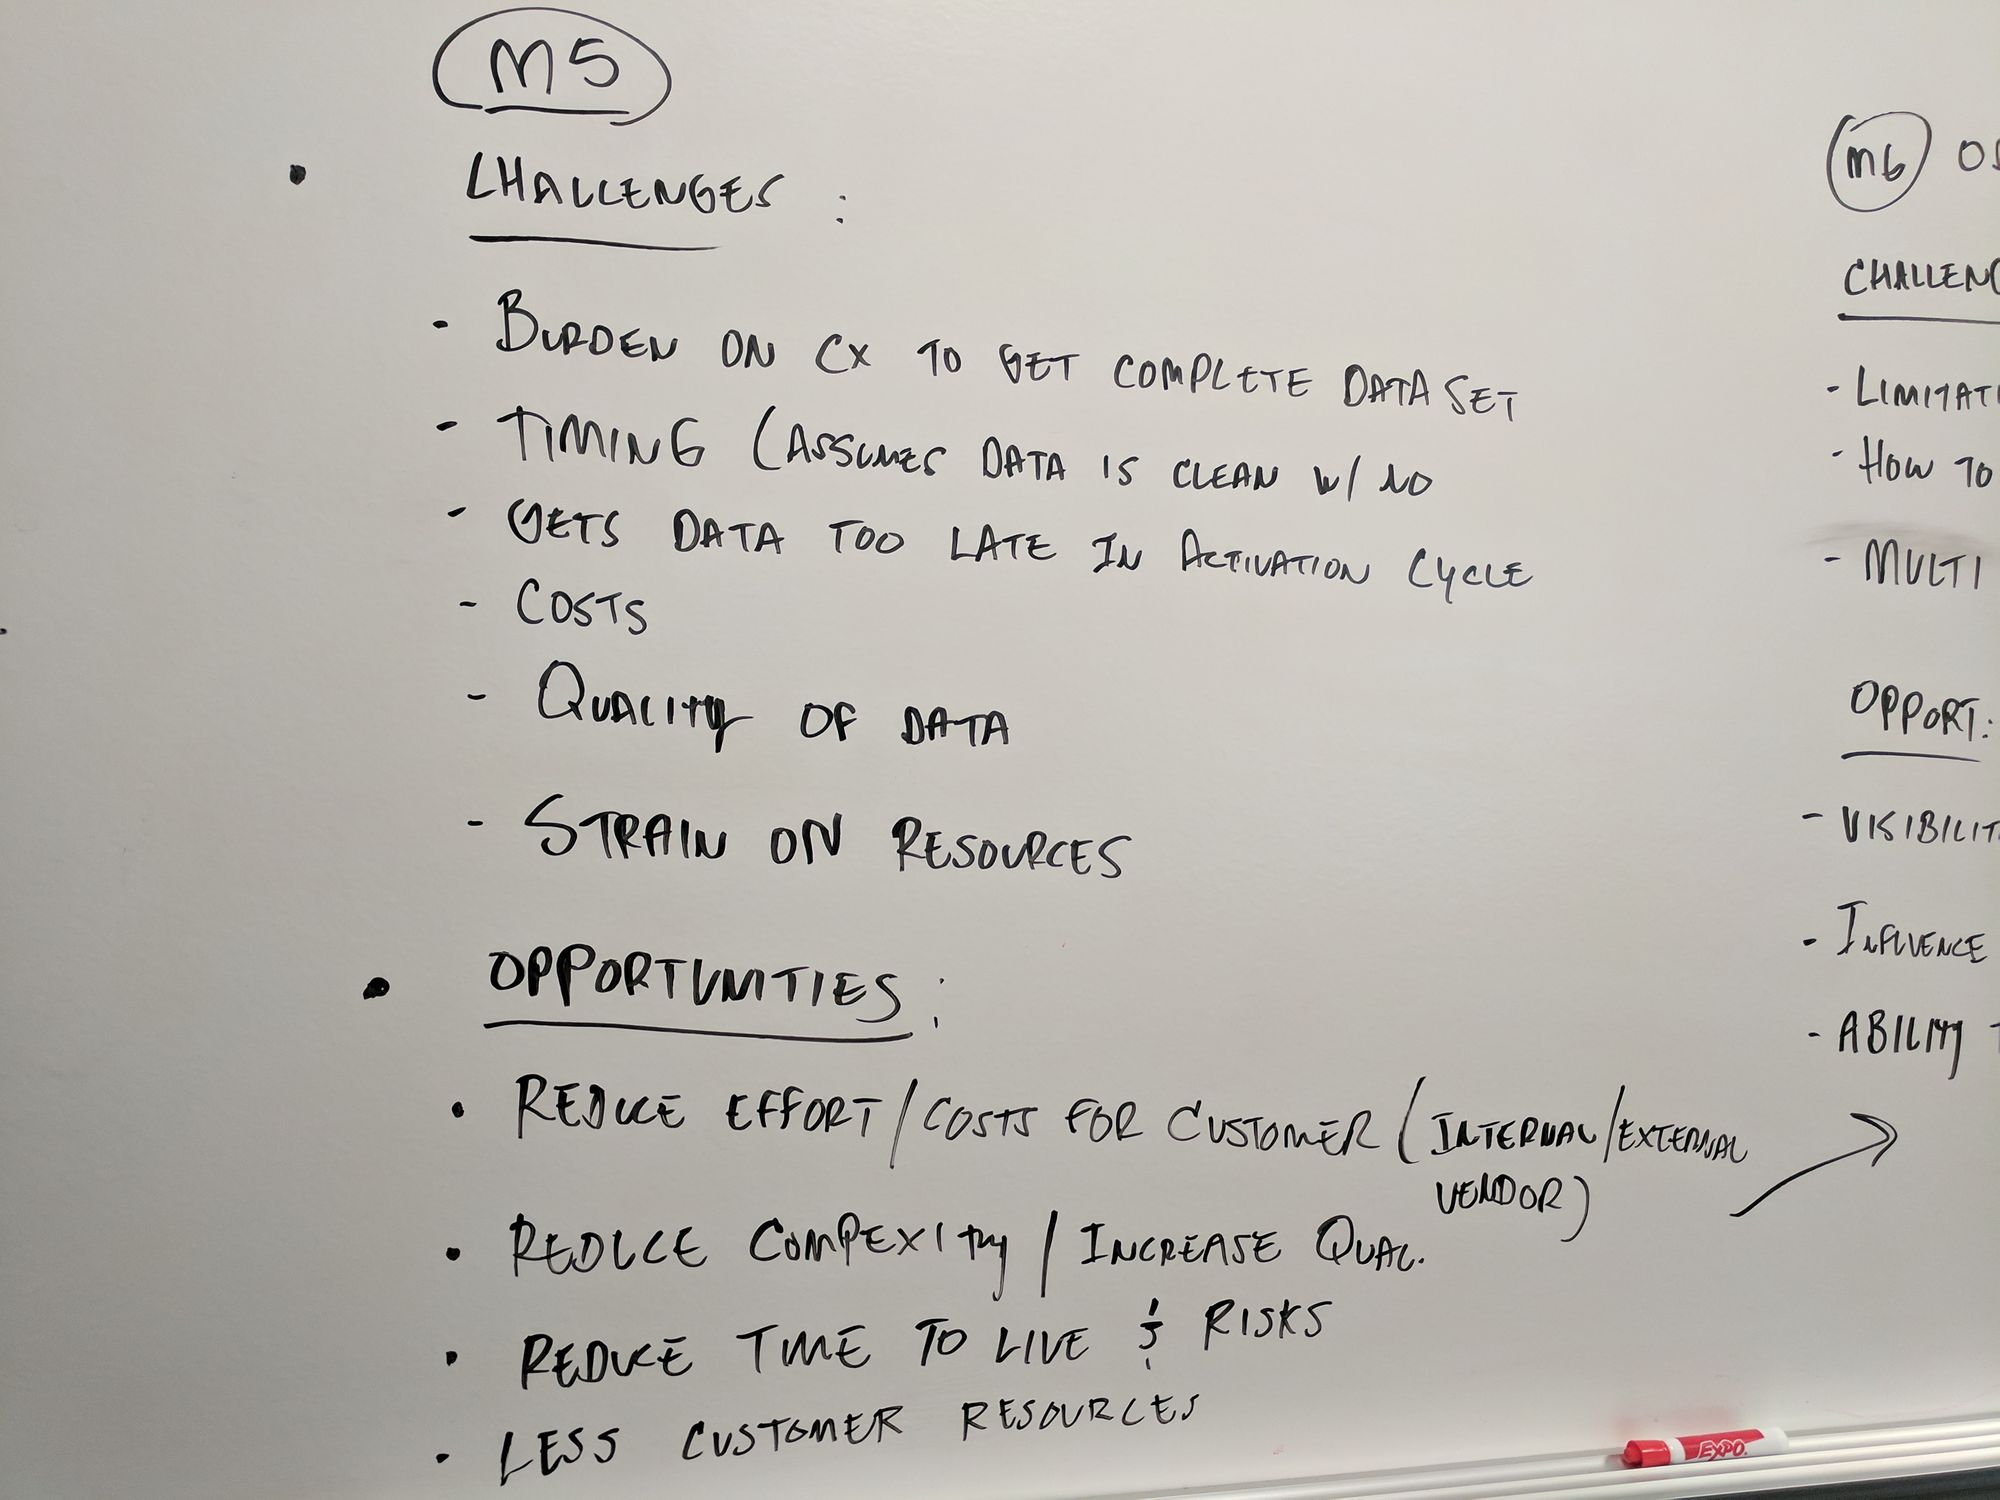 M5
• CHALLENGES :
- BURDEN ON CX TO GET COMPLETE DATA SET
- TIMING (ASSUMES DATA IS CLEAN W/ NO
- GETS DATA TOO LATE IN ACTIVATION CYCLE
- COSTS
- QUALITY OF DATA
- STRAIN ON RESOURCES
• OPPORTUNITIES :
• REDUCE EFFORT/COSTS FOR CUSTOMER (INTERNAL/EXTERNAL
VENDOR)
• REDUCE COMPEXITY / INCREASE QUAL.
• REDUCE TIME TO LIVE & RISKS
• LESS CUSTOMER RESOURCES
M6
CHALLENG
- LIMITATI
- HOW TO
- MULTI
OPPORT:
- VISIBILIT
- INFLUENCE
- ABILITY
EXPO